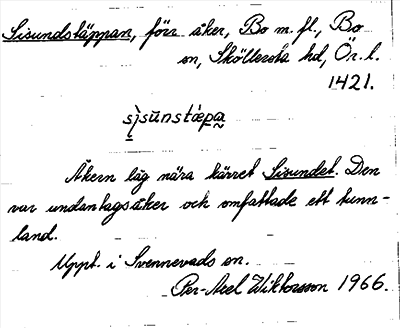 Sisundstäppan, förr åker, Bo m. fl., Bo
sn, Sköllersta hd, Ör. l.
1421.
sı̀súnstæpa
Åkern låg nära kärret Sisundet. Den
var undantagsåker och omfattade ett tunn-
land.
Uppt. i Svennevads sn.
Per-Axel Wiktorsson 1966.